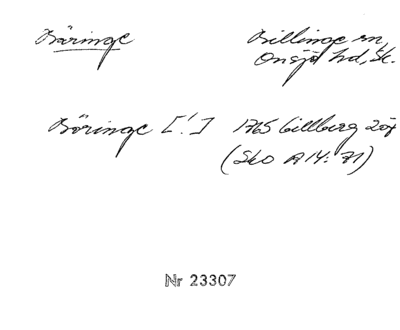 Bäringe Billinge sn,
Onsjö hd, Sk.
Böringe [!] 1765 Gillberg 207
(Sko A 14: 71)
Nr 23307